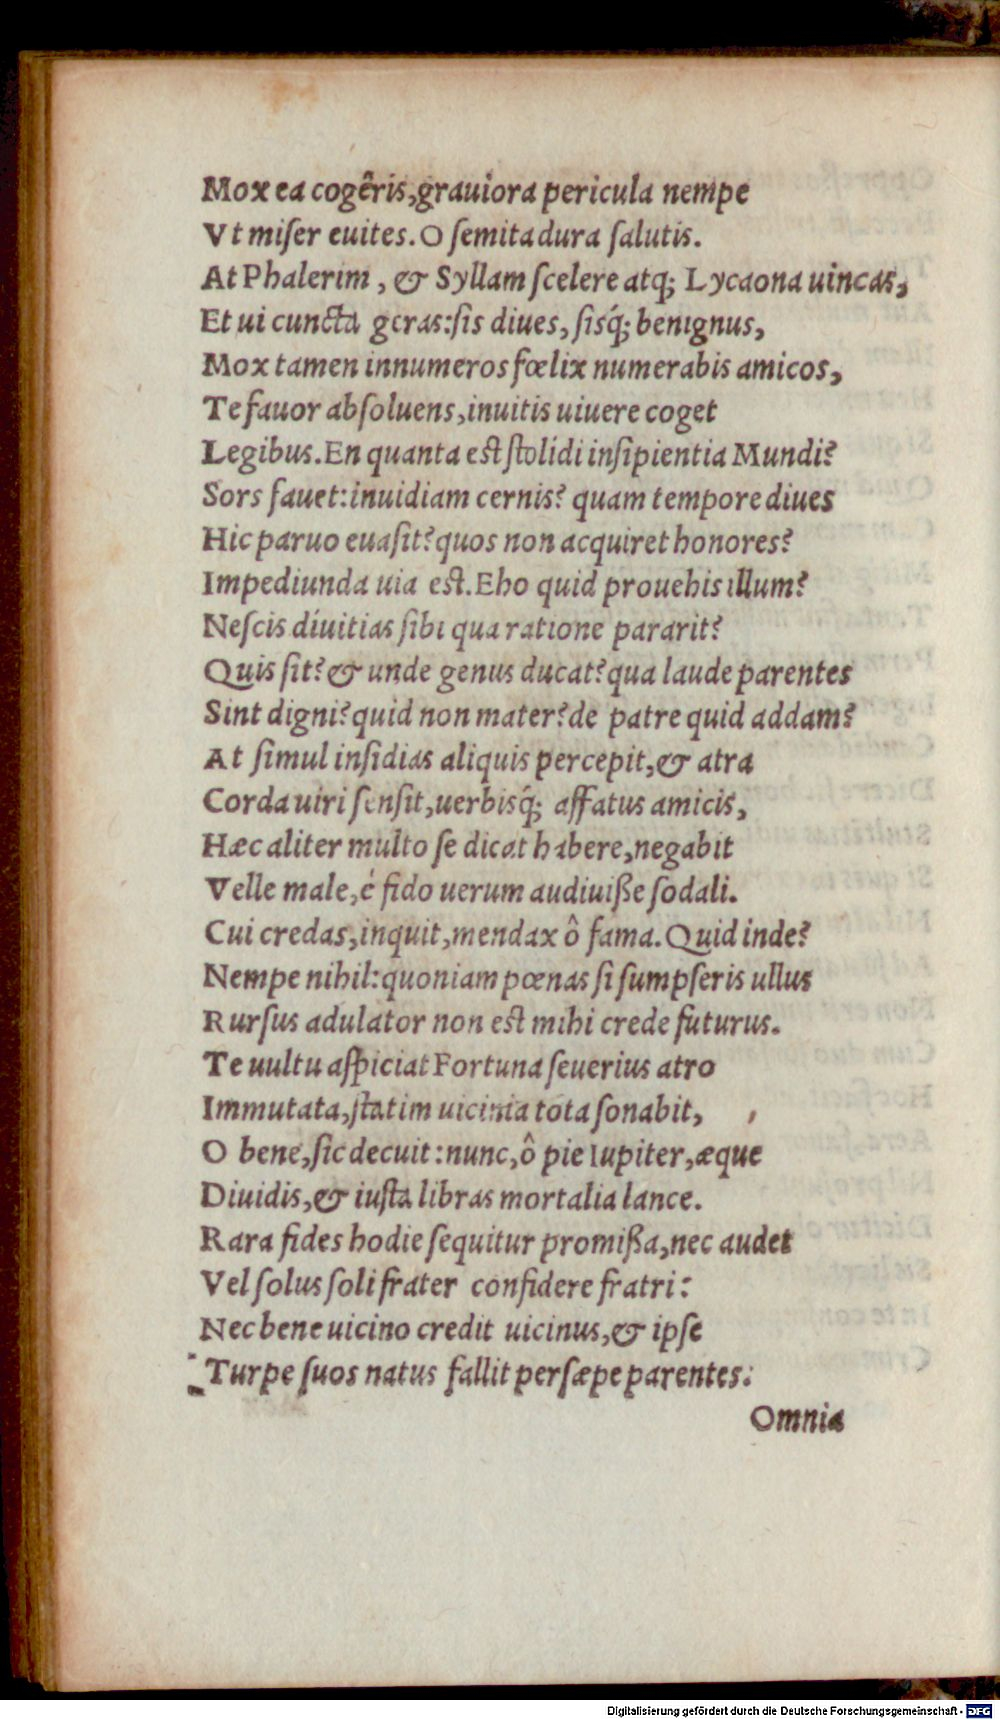 Mox ea cogêris,grauiora pericula nempe
Vt miſer euites. O ſemita dura ſalutis.
At Phalerim , & Syllam ſcelere atq; Lycaona uincas,
Et ui cuncta geras:ſis diues, ſisq́; benignus,
Mox tamen innumeros fœlix numerabis amicos,
Te fauor abſoluens,inuitis uiuere coget
Legibus. En quanta eſt ſtolidi inſipientia Mundi?
Sors fauet:inuidiam cernis? quam tempore diues
Hic paruo euaſit?quos non acquiret honores?
Impediunda uia eſt. Eho quid prouehis illum?
Neſcis diuitias ſibi qua ratione pararit?
Quis ſit?& unde genus ducat?qua laude parentes
Sint digni?quid non mater?de patre quid addam?
At ſimul inſidias aliquis percepit,& atra
Corda uiri ſenſit,uerbisq́; affatus amicis,
Hæc aliter multo ſe dicat habere,negabit
Velle male,é fido uerum audiuiße ſodali.
Cui credas,inquit,mendax ô fama. Quid inde?
Nempe nihil:quoniam pœnas ſi ſumpſeris ullus
Rurſus adulator non eſt mihi crede futurus.
Te uultu aſpiciat Fortuna ſeuerius atro
Immutata,ſtatim uicinia tota ſonabit,
O bene,ſic decuit:nunc,ô pie Iupiter,æque
Diuidis,& iuſta libras mortalia lance.
Rara fides hodie ſequitur promißa,nec audet
Vel ſolus ſoli frater confidere fratri:
Nec bene uicino credit uicinus,& ipſe
Turpe ſuos natus fallit perſæpe parentes:
Omnia
Digitalisierung gefördert durch die Deutsche Forschungsgemeinschaft - DFG